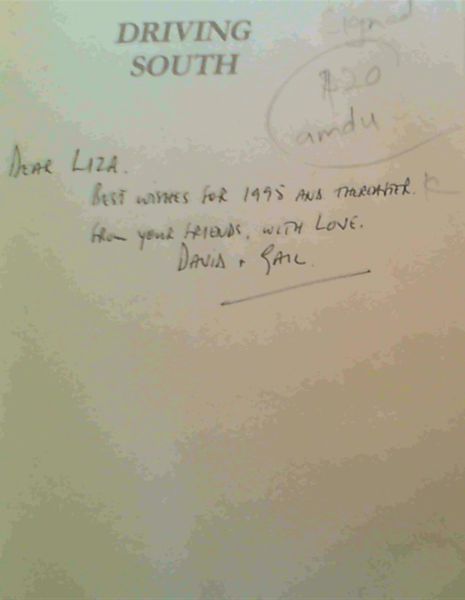 DRIVING
SOUTH
Signed
R20
amdu
DEAR LIZA.
BEST WISHES FOR 1995 AND THEREAFTER.
FROM YOUR FRIENDS. WITH LOVE.
DAVID + GAIL.